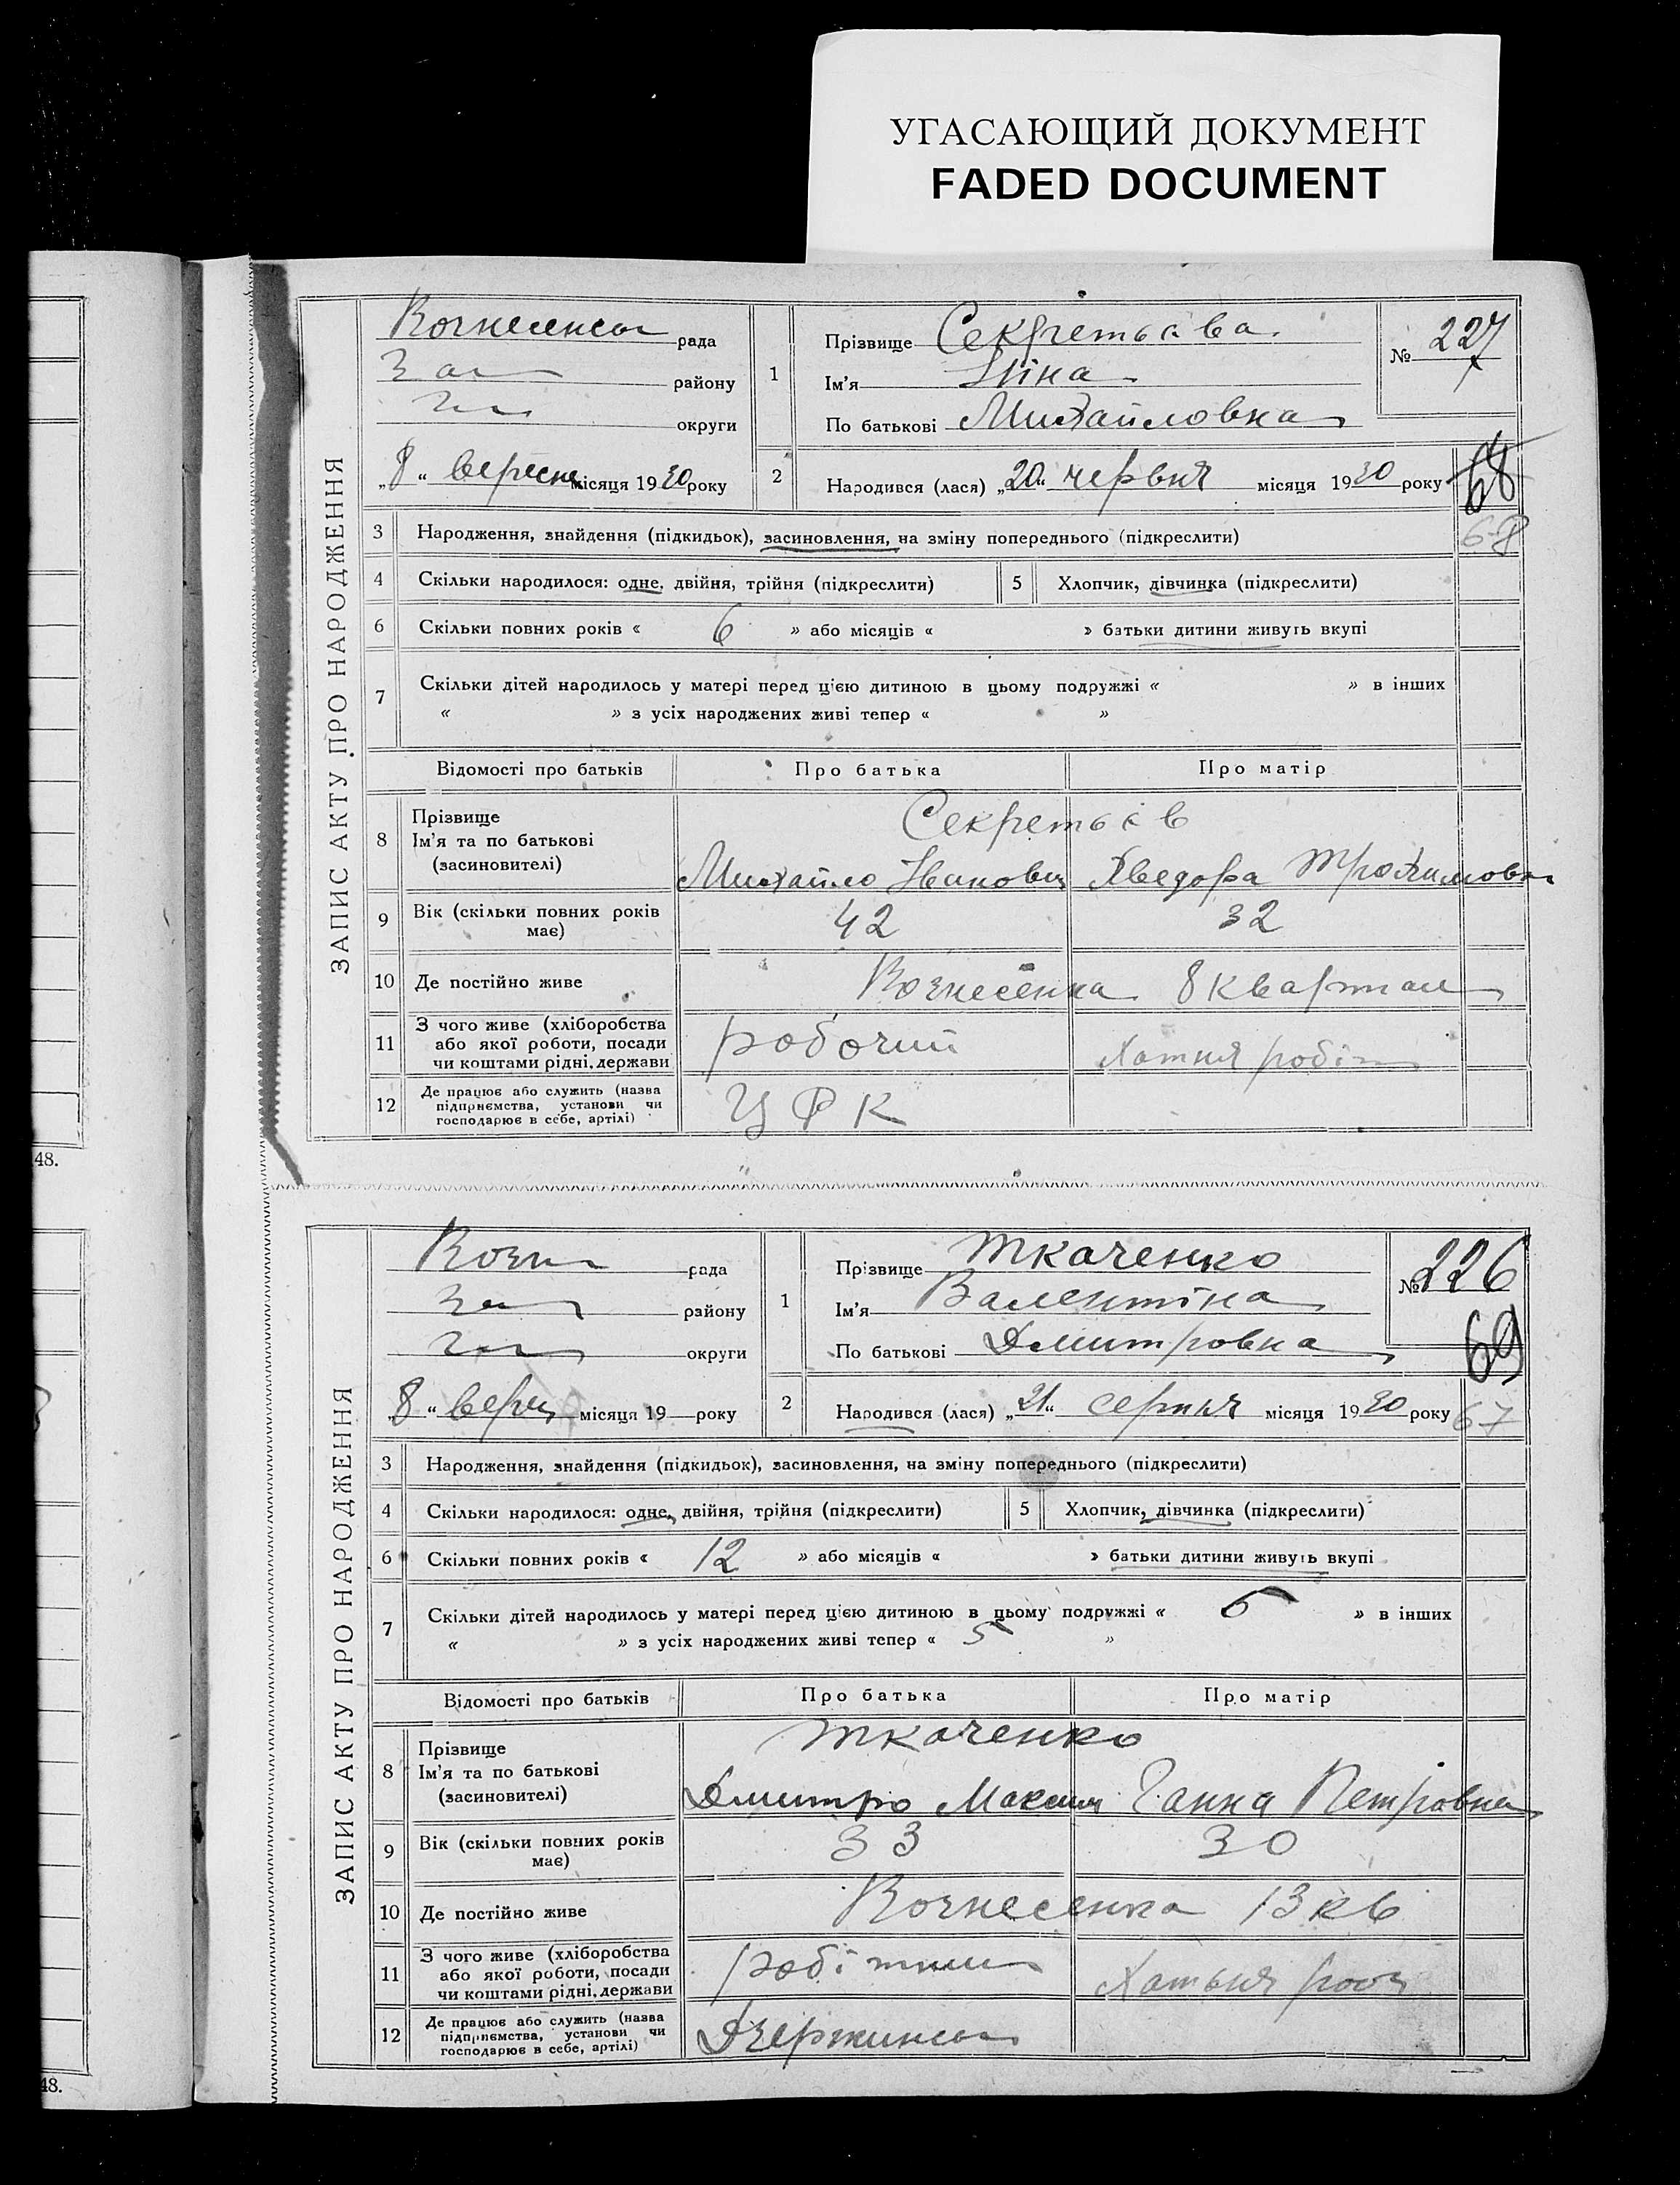 УГАСАЮЩИЙ ДОКУМЕНТ
FADED DOCUMENT
ЗАПИС АКТУ ПРО НАРОДЖЕННЯ
рада
Зап району
округи
„8“ вересня місяця 1930 року
1 Прізвище Секретьєва
Ім'я Ніна
По батькові Михайловна
№ 227
2 Народився (лася) „20“ червня місяця 1930 року
68
68
3 Народження, знайдення (підкидьок), засиновлення, на зміну попереднього (підкреслити)
4 Скільки народилося: одне, двійня, трійня (підкреслити) 5 Хлопчик, дівчинка (підкреслити)
6 Скільки повних років « 6 » або місяців « » батьки дитини живуть вкупі
7 Скільки дітей народилось у матері перед цією дитиною в цьому подружжі « » в інших
« » з усіх народжених живі тепер « »
Відомості про батьків Про батька Про матір
8 Прізвище
Ім'я та по батькові
(засиновителі)
Секретьєв
Михайло Іванови Хведора Трохимовна
9 Вік (скільки повних років має) 42 32
10 Де постійно живе Вознесенка 8 квартал
11 З чого живе (хліборобства
або якої роботи, посади
чи коштами рідні, держави
робочий Хатня робіт
12 Де працює або служить (назва
підприємства, установи чи
господарює в себе, артілі)
ЦФК
48.
ЗАПИС АКТУ ПРО НАРОДЖЕННЯ
Возн рада
Зап району
округи
„8“ верес місяця 19 року
1 Прізвище Ткаченко
Ім'я Валентіна
По батькові Дмитровна
№ 226
69
2 Народився (лася) „21“ серпня місяця 1930 року
67
3 Народження, знайдення (підкидьок), засиновлення, на зміну попереднього (підкреслити)
4 Скільки народилося: одне, двійня, трійня (підкреслити) 5 Хлопчик, дівчинка (підкреслити)
6 Скільки повних років « 12 » або місяців « » батьки дитини живуть вкупі
7 Скільки дітей народилось у матері перед цією дитиною в цьому подружжі « 5 » в інших
« » з усіх народжених живі тепер « 5 »
Відомості про батьків Про батька Про матір
8 Прізвище
Ім'я та по батькові
(засиновителі)
Ткаченко
Дмитро Максим Ганна Петровна
9 Вік (скільки повних років має) 33 30
10 Де постійно живе Вознесенка 13 кв
11 З чого живе (хліборобства
або якої роботи, посади
чи коштами рідні, держави
робітник Хатня роб
12 Де працює або служить (назва
підприємства, установи чи
господарює в себе, артілі)
Дзержинськ
48.